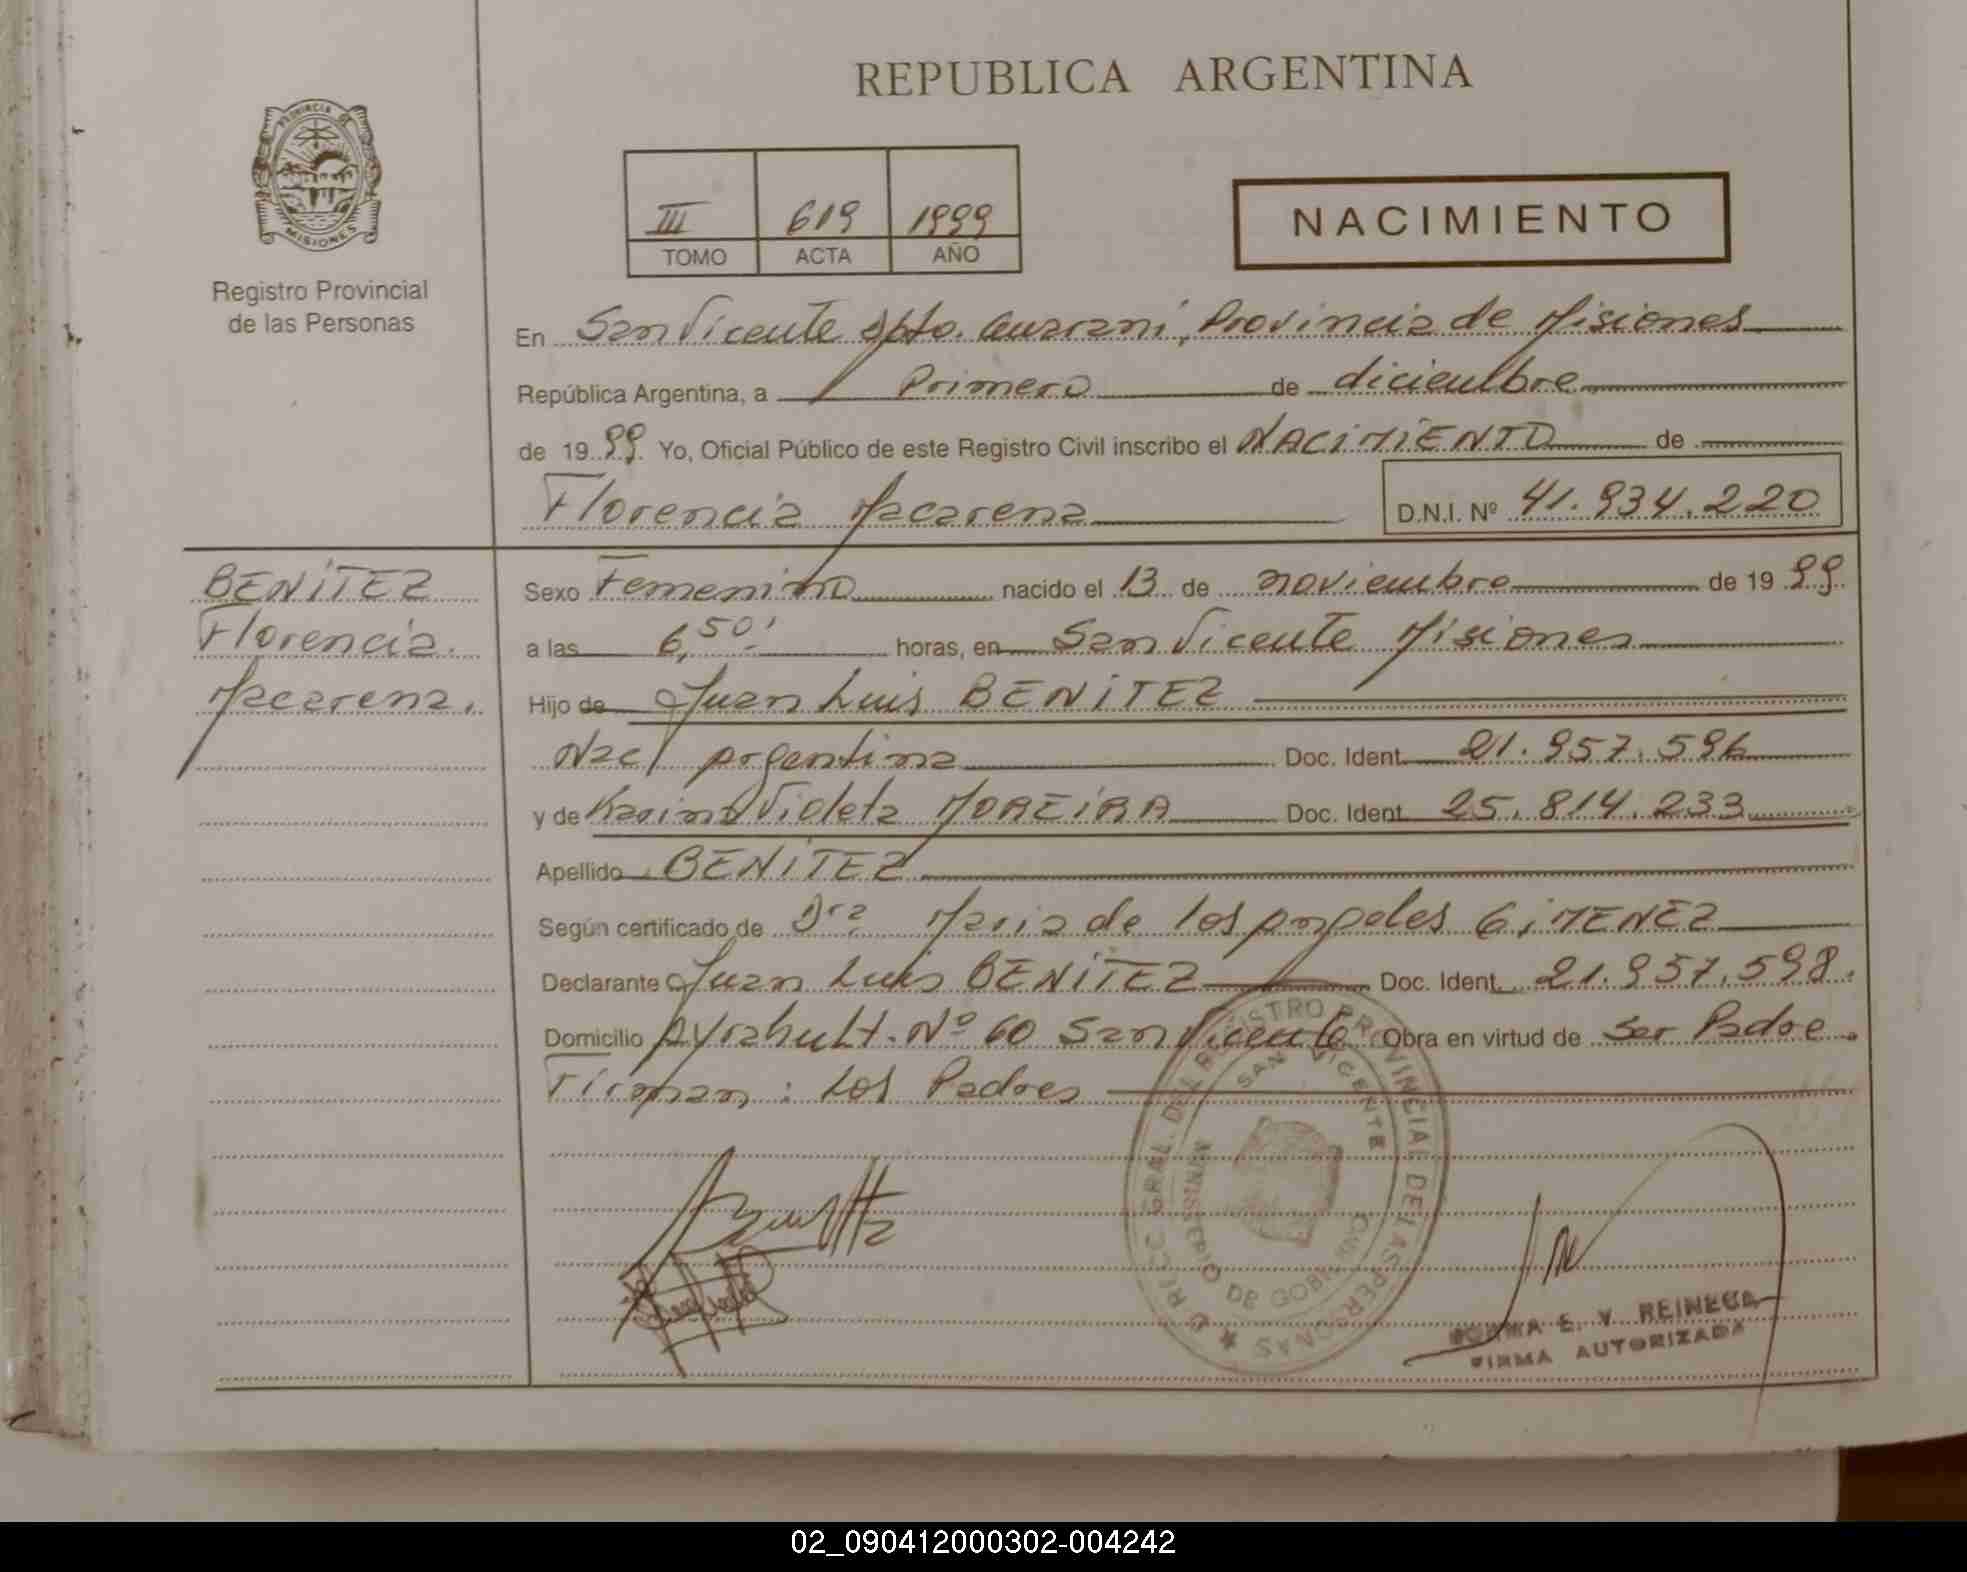 REPUBLICA ARGENTINA
PROVINCIA DE
MISIONES
Registro Provincial
de las Personas
III 619 1999
TOMO ACTA AÑO
NACIMIENTO
En San Vicente Dpto. Guarani, Provincia de Misiones
República Argentina, a Primero de diciembre
de 19 99 Yo, Oficial Público de este Registro Civil inscribo el NACIMIENTO de
Florencia Macarena D.N.I. Nº 41.934.220
BENITEZ
Florencia
Macarena.
Sexo Femenino nacido el 13 de noviembre de 19 99
a las 6,50' horas, en San Vicente Misiones
Hijo de Juan Luis BENITEZ
Nac/ Argentina Doc. Ident. 21.957.596
y de Karina Violeta MOREIRA Doc. Ident. 25.814.233
Apellido BENITEZ
Según certificado de Dra Maria de los Angeles GIMENEZ
Declarante Juan Luis BENITEZ Doc. Ident. 21.957.598.
Domicilio Nº 60 San Vicente Obra en virtud de Ser Padre.
Firman: Los Padres
DIRECC GRAL. DEL REGISTRO PROVINCIAL DE LAS PERSONAS
SAN VICENTE
MINISTERIO DE GOBIERNO
NORMA E. V. REINEGA
FIRMA AUTORIZADA
02_090412000302-004242